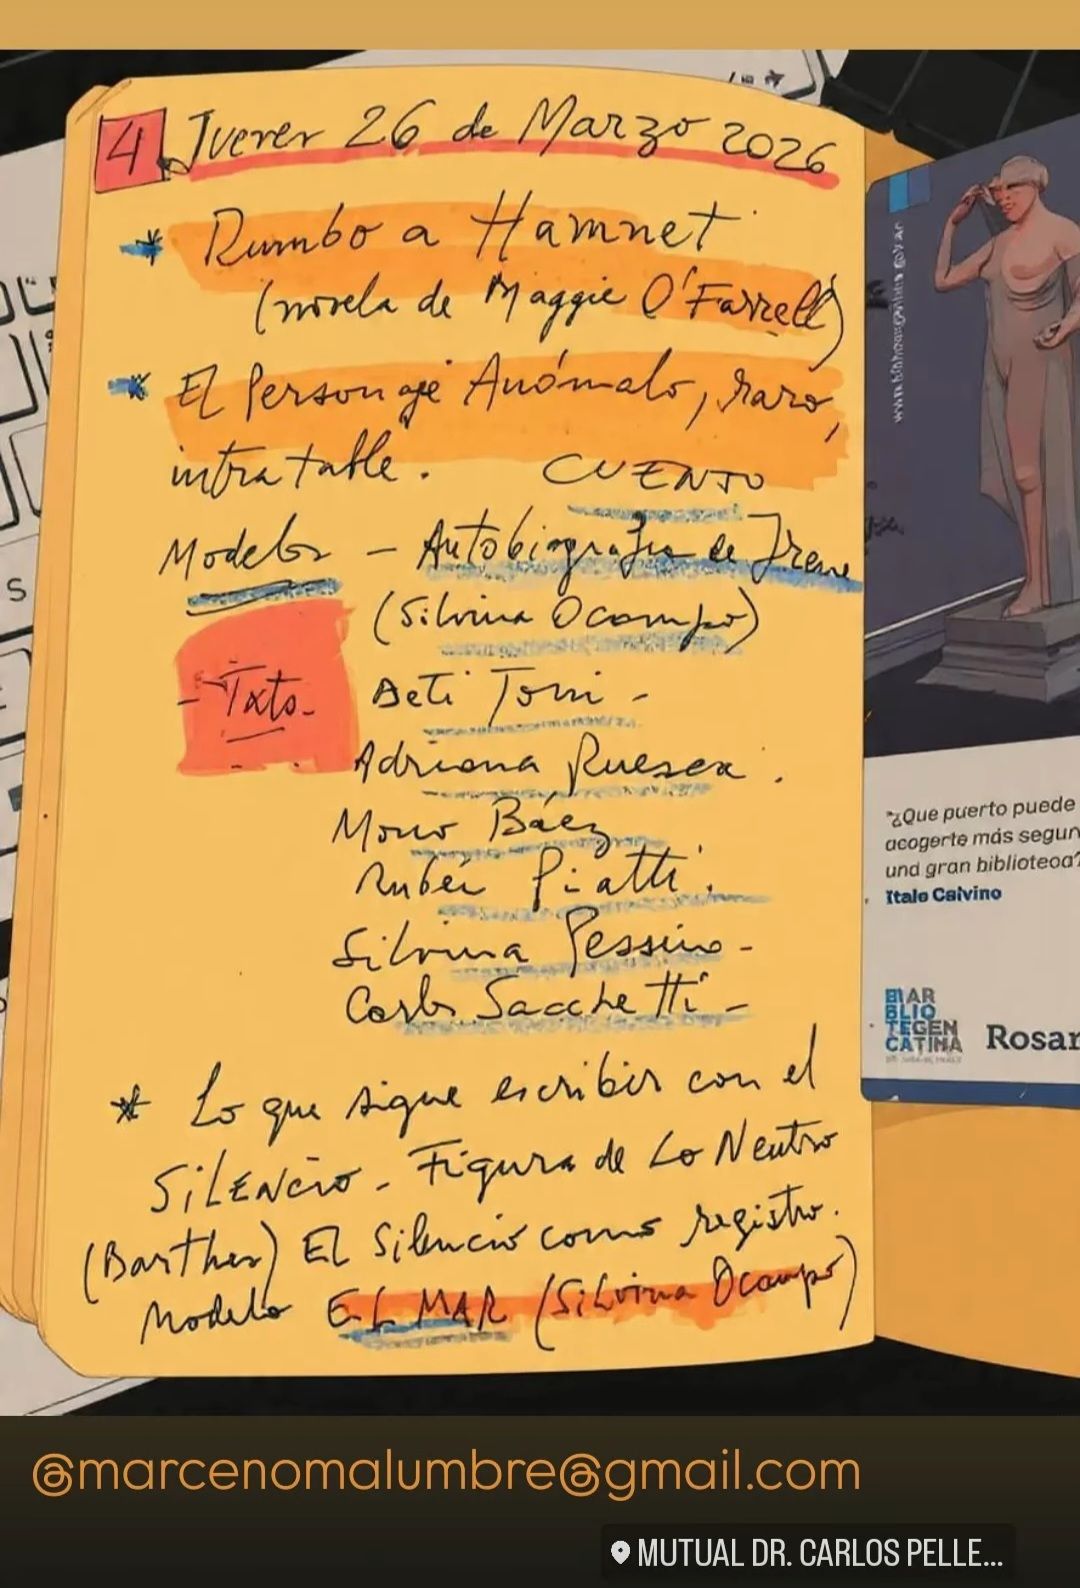 4 Jueves 26 de Marzo 2026
* Rumbo a Hamnet
(novela de Maggie O'Farrell)
* El Personaje Anómalo, raro,
intratable. CUENTO
Modelos - Autobiografía de Irene
(Silvina Ocampo)
- Txto - Beti Toni -
Adriana
Mono Báez
Rubén Piatti.
Silvina Pessino -
Carlos Sacchetti -
* Lo que sigue escribir con el
SILENCIO - Figura de Lo Neutro
(Barthes) El Silencio como registro.
Modelo EL MAR (Silvina Ocampo)
"¿Que puerto puede
acogerte más segur
una gran biblioteca?
Italo Calvino
Rosar
@marcenomalumbre@gmail.com
MUTUAL DR. CARLOS PELLE...